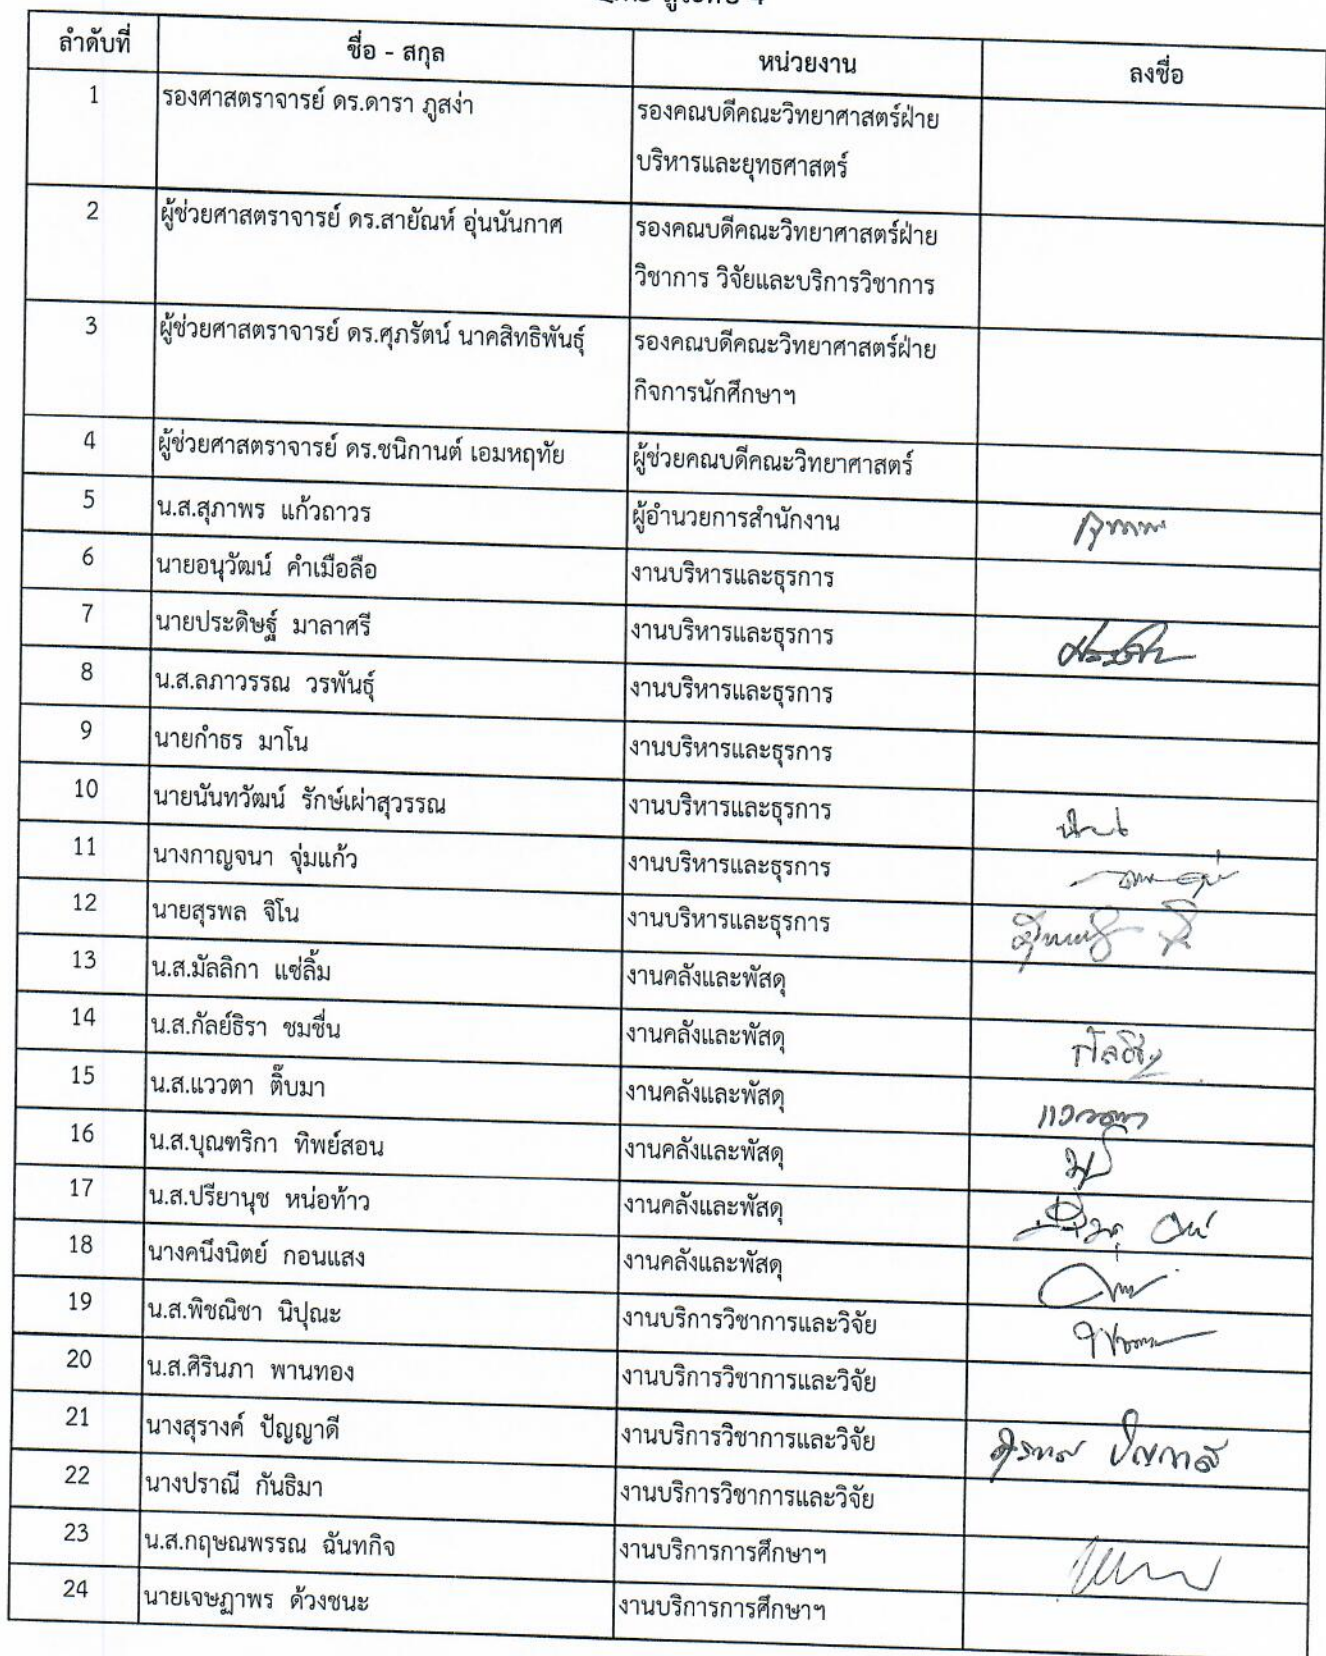 ลำดับที่ ชื่อ - สกุล หน่วยงาน ลงชื่อ
1 รองศาสตราจารย์ ดร.ดารา ภูสง่า รองคณบดีคณะวิทยาศาสตร์ฝ่าย
บริหารและยุทธศาสตร์
2 ผู้ช่วยศาสตราจารย์ ดร.สายัณห์ อุ่นนันกาศ รองคณบดีคณะวิทยาศาสตร์ฝ่าย
วิชาการ วิจัยและบริการวิชาการ
3 ผู้ช่วยศาสตราจารย์ ดร.ศุภรัตน์ นาคสิทธิพันธุ์ รองคณบดีคณะวิทยาศาสตร์ฝ่าย
กิจการนักศึกษาฯ
4 ผู้ช่วยศาสตราจารย์ ดร.ชนิกานต์ เอมหฤทัย ผู้ช่วยคณบดีคณะวิทยาศาสตร์
5 น.ส.สุภาพร แก้วถาวร ผู้อำนวยการสำนักงาน
6 นายอนุวัฒน์ คำเมือลือ งานบริหารและธุรการ
7 นายประดิษฐ์ มาลาศรี งานบริหารและธุรการ
8 น.ส.ลภาวรรณ วรพันธุ์ งานบริหารและธุรการ
9 นายกำธร มาโน งานบริหารและธุรการ
10 นายนันทวัฒน์ รักษ์เผ่าสุวรรณ งานบริหารและธุรการ
11 นางกาญจนา จุ่มแก้ว งานบริหารและธุรการ
12 นายสุรพล จิโน งานบริหารและธุรการ
13 น.ส.มัลลิกา แซ่ลิ้ม งานคลังและพัสดุ
14 น.ส.กัลย์ธิรา ชมชื่น งานคลังและพัสดุ
15 น.ส.แววตา ติ๊บมา งานคลังและพัสดุ แววตา
16 น.ส.บุณฑริกา ทิพย์สอน งานคลังและพัสดุ
17 น.ส.ปรียานุช หน่อท้าว งานคลังและพัสดุ
18 นางคนึงนิตย์ กอนแสง งานคลังและพัสดุ
19 น.ส.พิชณิชา นิปุณะ งานบริการวิชาการและวิจัย
20 น.ส.ศิรินภา พานทอง งานบริการวิชาการและวิจัย
21 นางสุรางค์ ปัญญาดี งานบริการวิชาการและวิจัย
22 นางปราณี กันธิมา งานบริการวิชาการและวิจัย
23 น.ส.กฤษณพรรณ ฉันทกิจ งานบริการการศึกษาฯ
24 นายเจษฎาพร ด้วงชนะ งานบริการการศึกษาฯ